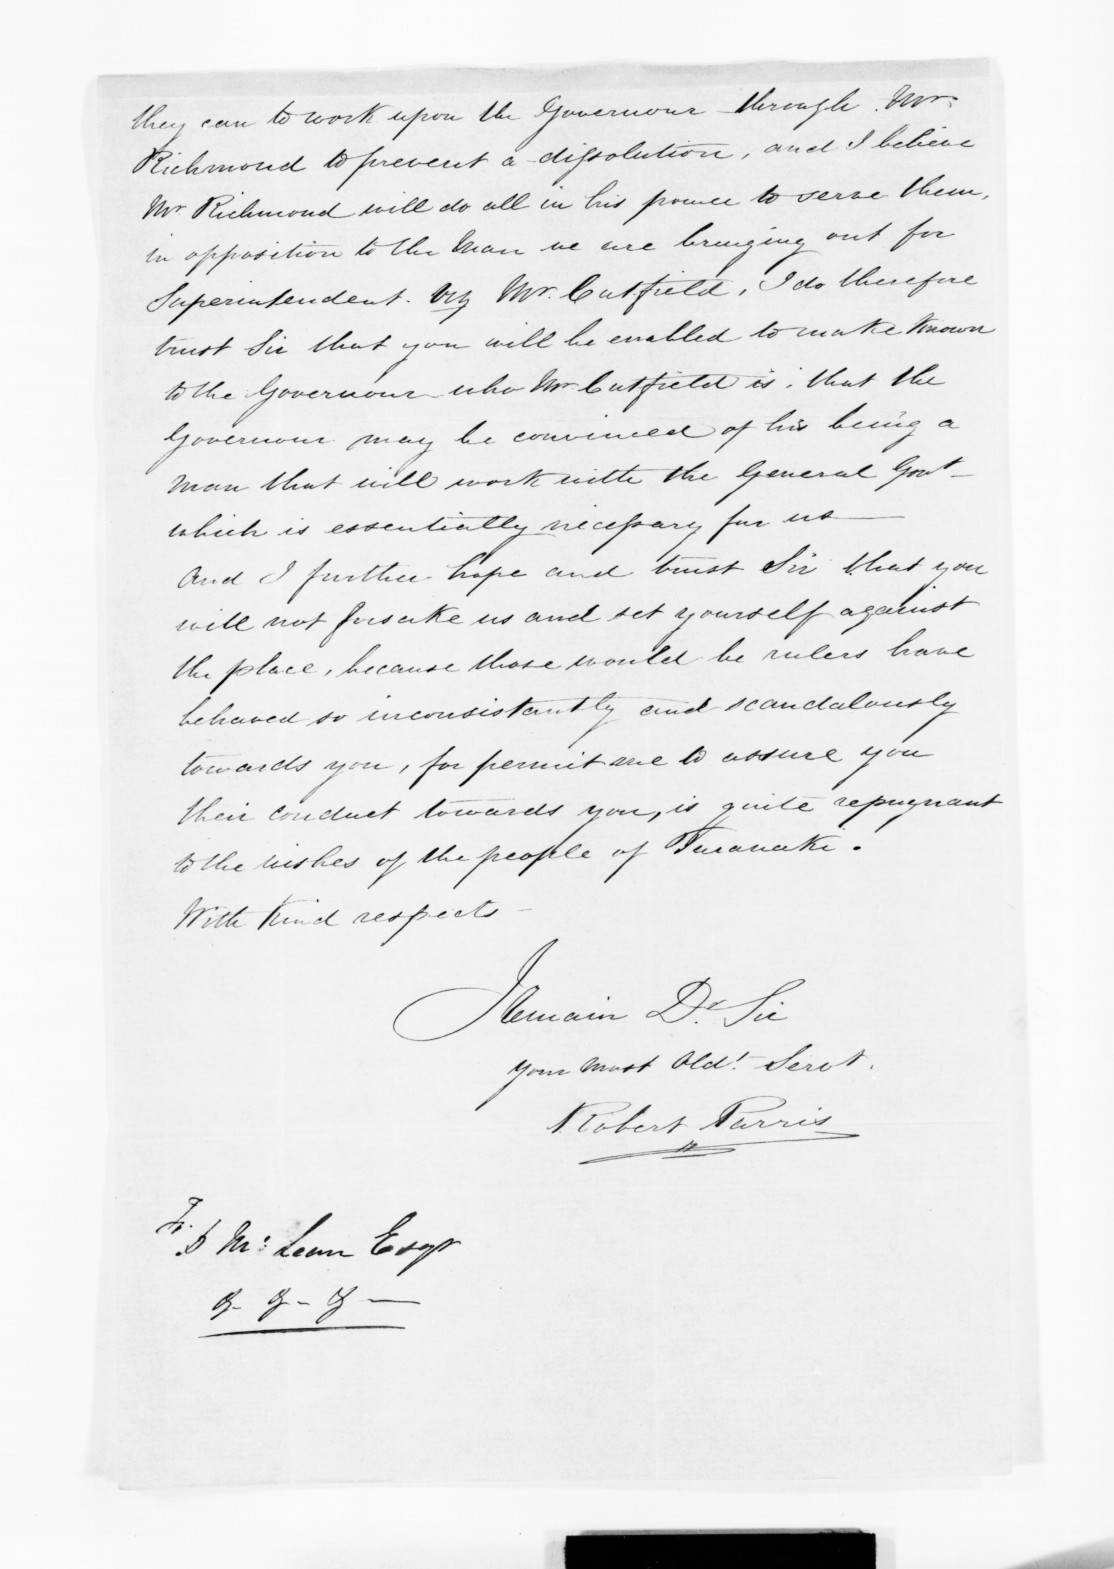 they can to work upon the Governour through Mr.
Richmond to prevent a dissolution, and I believe
Mr Richmond will do all in his power to serve them,
in opposition to the Man we are bringing out for
Superintendent. viz Mr. Cutfield, I do therefore
trust Sir that you will be enabled to make known
to the Governour who Mr Cutfield is, that the
Governour may be convinced of his being a
man that will work with the General Govt —
which is essentially nicessary for us —
And I further hope and trust Sir that you
will not forsake us and set yourself against
the place, because those would be rulers have
behaved so inconsistantly and scandalously
towards you, for permit me to assure you
their conduct towards you, is quite repugnant
to the wishes of the people of Taranaki.
With kind respects —
I remain Dr. Sir
your most Obdt. Servt.
Robert Parris
To.
D Mc: Lean Esqr
&- &- & —